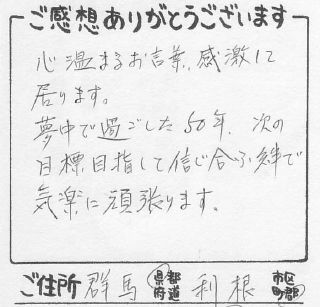 ご感想ありがとうございます
心温まるお言葉、感激して
居ります。
夢中で過ごした50年、次の
目標目指して信じ合ふ絆で
気楽に頑張ります。
ご住所 群馬 都道府県 利根 市区町郡